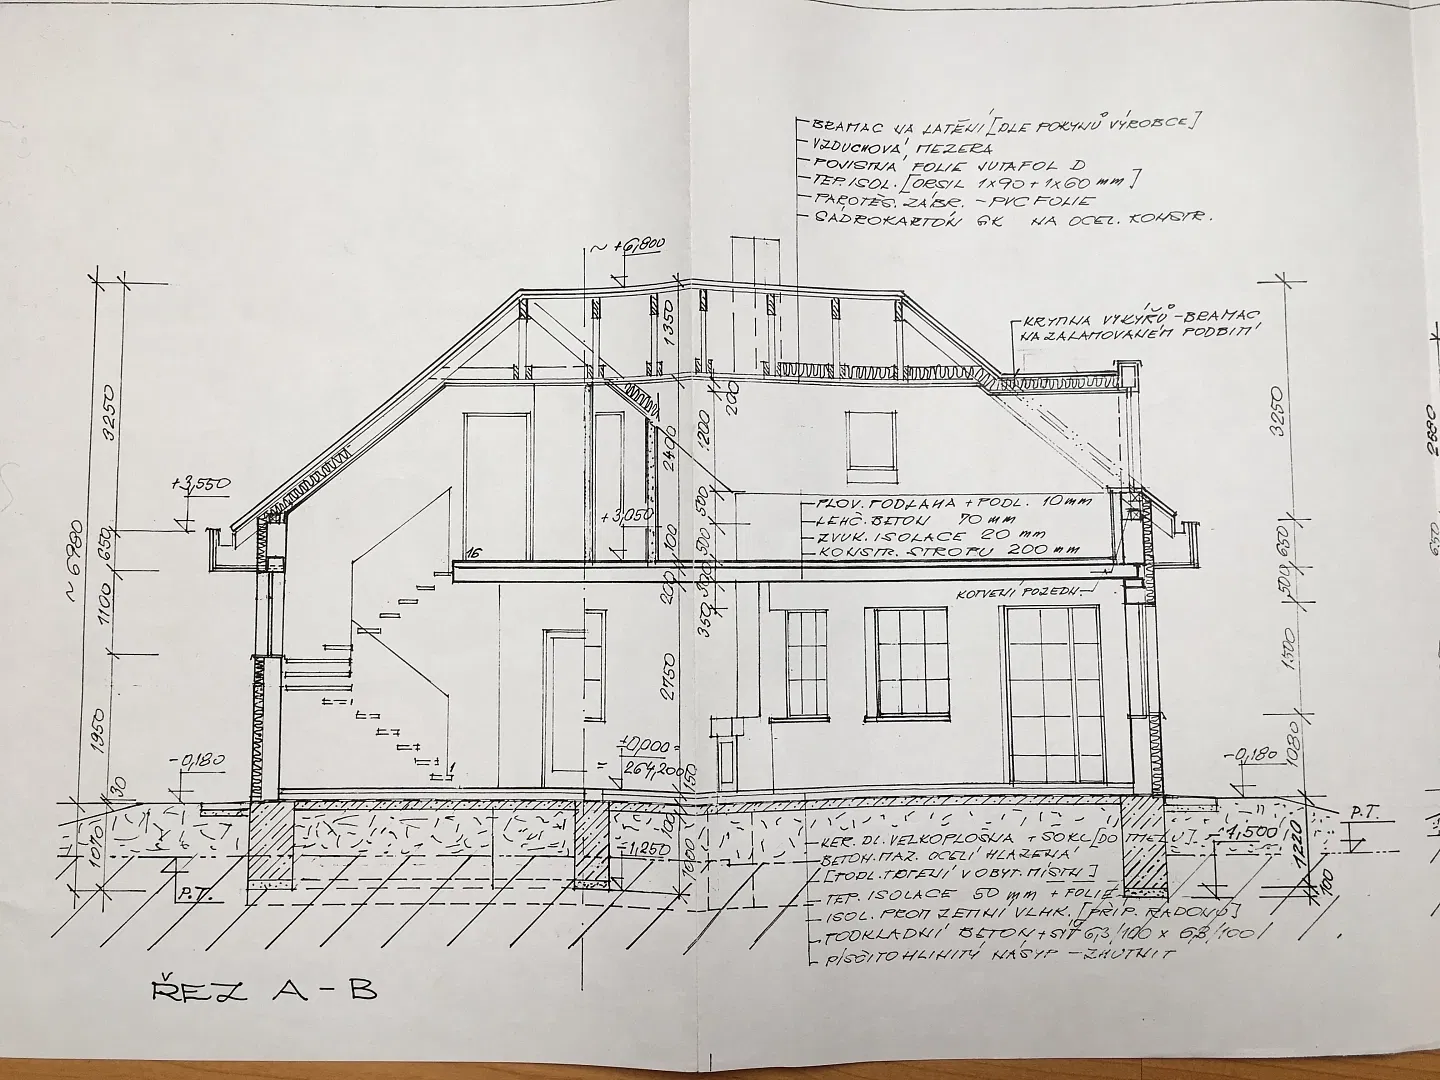 BRAMAC NA LATĚNÍ [DLE POKYNŮ VÝROBCE]
VZDUCHOVÁ MEZERA
POJISTNÁ FOLIE JUTAFOL D
TEP. ISOL. [ORSIL 1x90 + 1x60 mm]
PAROTĚS. ZÁBR. - PVC FOLIE
SÁDROKARTÓN GK NA OCEL. KONSTR.
~ +6,800
KRYTINA VÝKÝŘŮ - BRAMAC
NA ZALAMOVANÉM PODBITÍ
1350
200
3250
3250
2880
+3,550
2400
1200
500
+3,050
PLOV. PODLAHA + PODL. 10 mm
LEHČ. BETON 70 mm
ZVUK. ISOLACE 20 mm
KONSTR. STROPU 200 mm
16
100
500
~ 6980
650
650
650
1100
200
300
350
500
KOTVENÍ POZEDN.
2750
1500
1950
1080
±0,000 =
= 264,200
-0,180
-0,180
150
30
1
1070
100
1000
-1,250
-1,500
1220
100
P.T.
P.T.
KER. DL. VELKOPLOŠNÁ + SOKL [DO TMELU]
BETON. MAZ. OCELÍ HLAZENÁ
[PODL. TOPENÍ V OBYT. MÍSTN]
TEP. ISOLACE 50 mm + FOLIE
ISOL. PROTI ZEMNÍ VLHK. [PŘÍP. RADONU]
PODKLADNÍ BETON + SÍŤ 6,3/100 x 6,3/100
PÍSČITOHLINITÝ NÁSYP - ZHUTNIT
ŘEZ A - B